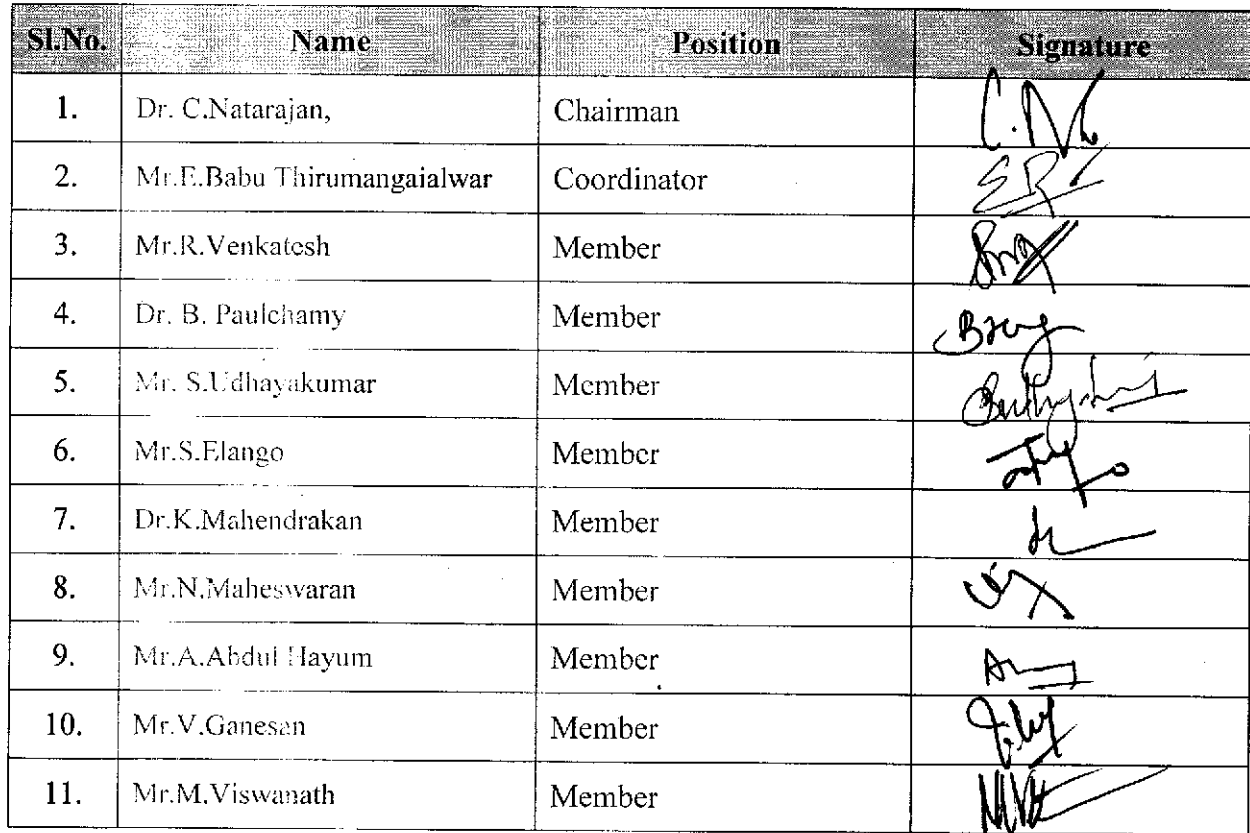 Sl.No. Name Position Signature
1. Dr. C.Natarajan, Chairman
2. Mr.E.Babu Thirumangaialwar Coordinator
3. Mr.R.Venkatesh Member
4. Dr. B. Paulchamy Member
5. Mr. S.Udhayakumar Member
6. Mr.S.Elango Member
7. Dr.K.Mahendrakan Member
8. Mr.N.Maheswaran Member
9. Mr.A.Abdul Hayum Member
10. Mr.V.Ganesan Member
11. Mr.M.Viswanath Member